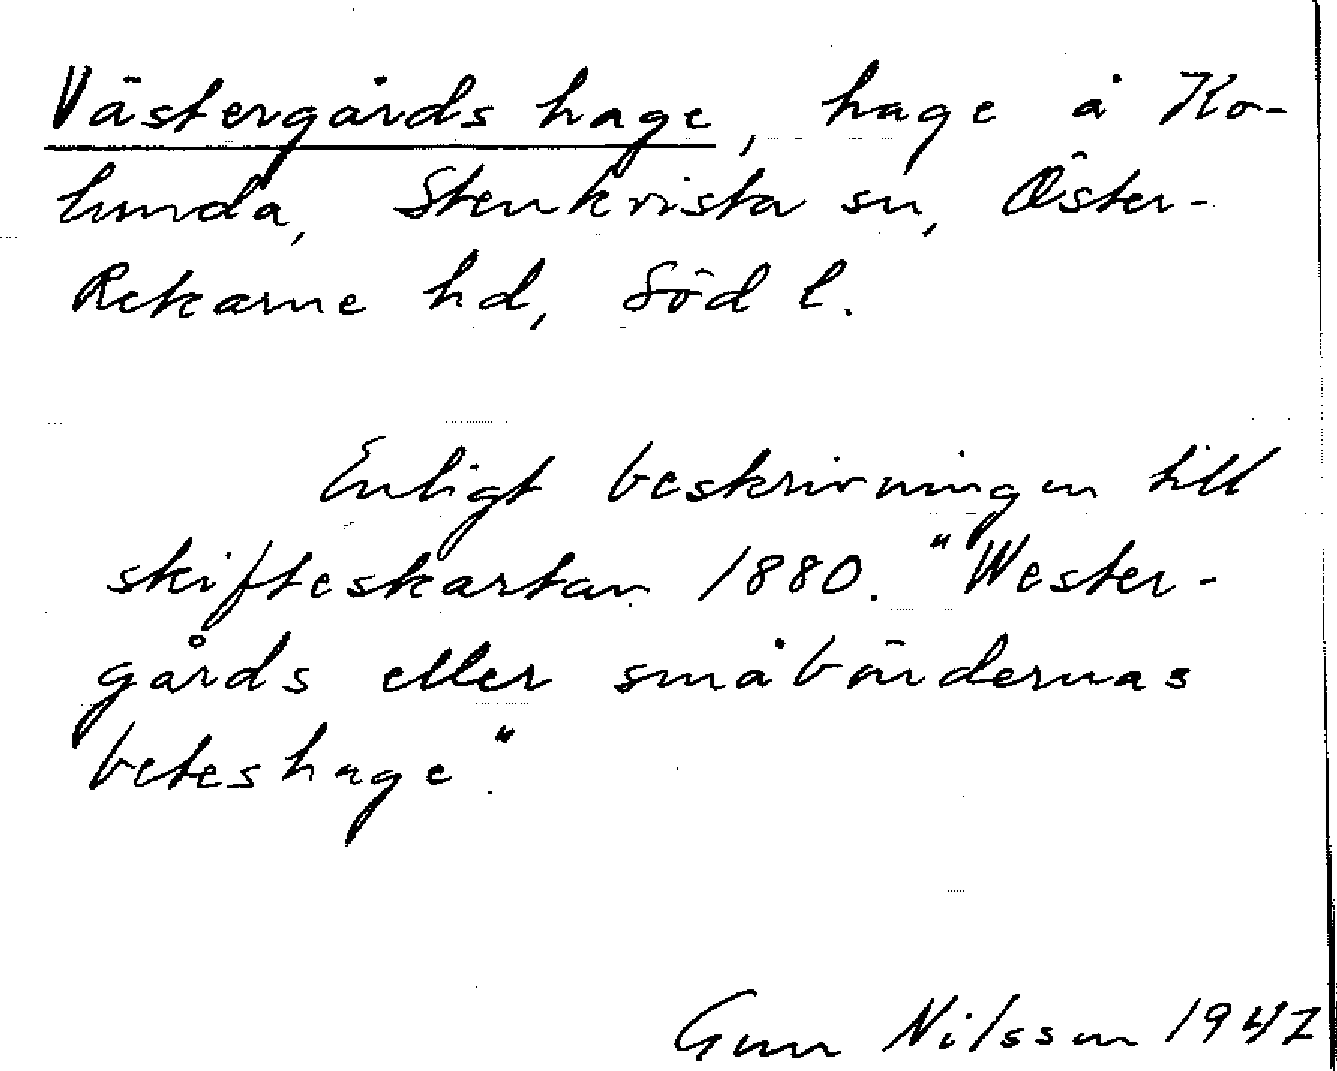 Västergårds hage, hage å Ko-
lunda, Stenkvista sn, Öster-
Rekarne hd, Söd l.
Enligt beskrivningen till
skifteskartan 1880. "Wester-
gårds eller småböndernas
beteshage".
Gun Nilsson 1947